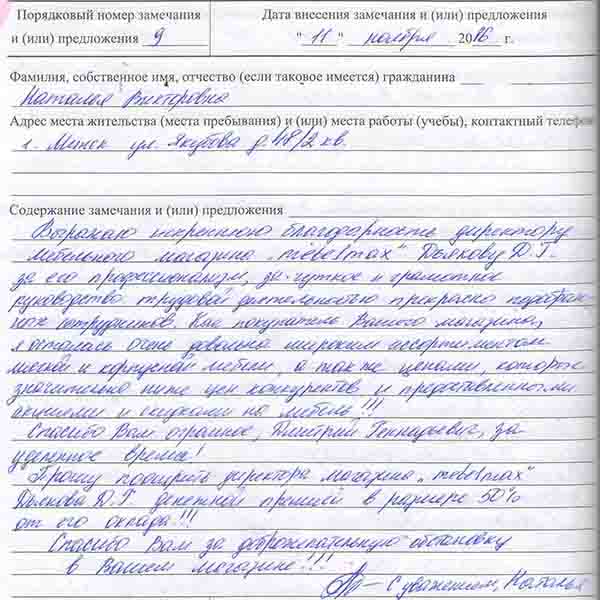 Порядковый номер замечания
и (или) предложения 9
Дата внесения замечания и (или) предложения
"11" ноября 2016 г.
Фамилия, собственное имя, отчество (если таковое имеется) гражданина
Наталья Викторовна
Адрес места жительства (места пребывания) и (или) места работы (учебы), контактный телефон
г. Минск ул. Якубова д. 48/2 кв.
Содержание замечания и (или) предложения
Выражаю искреннюю благодарность директору
мебельного магазина „mebelmax" Дьякову Д.Г.
за его профессионализм, за чуткое и грамотное
руководство трудовой деятельностью прекрасно подобран-
ных сотрудников. Как покупатель Вашего магазина,
я осталась очень довольна широким ассортиментом
мягкой и корпусной мебели, а также ценами, которые
значительно ниже цен конкурентов и предоставленными
акциями и скидками на мебель!!!
Спасибо Вам огромное, Дмитрий Геннадьевич, за
уделенное время!
Прошу поощрить директора магазина „mebelmax"
Дьякова Д.Г. денежной премией в размере 50%
от его оклада!!!
Спасибо Вам за доброжелательную обстановку
в Вашем магазине!!!
С уважением, Наталья